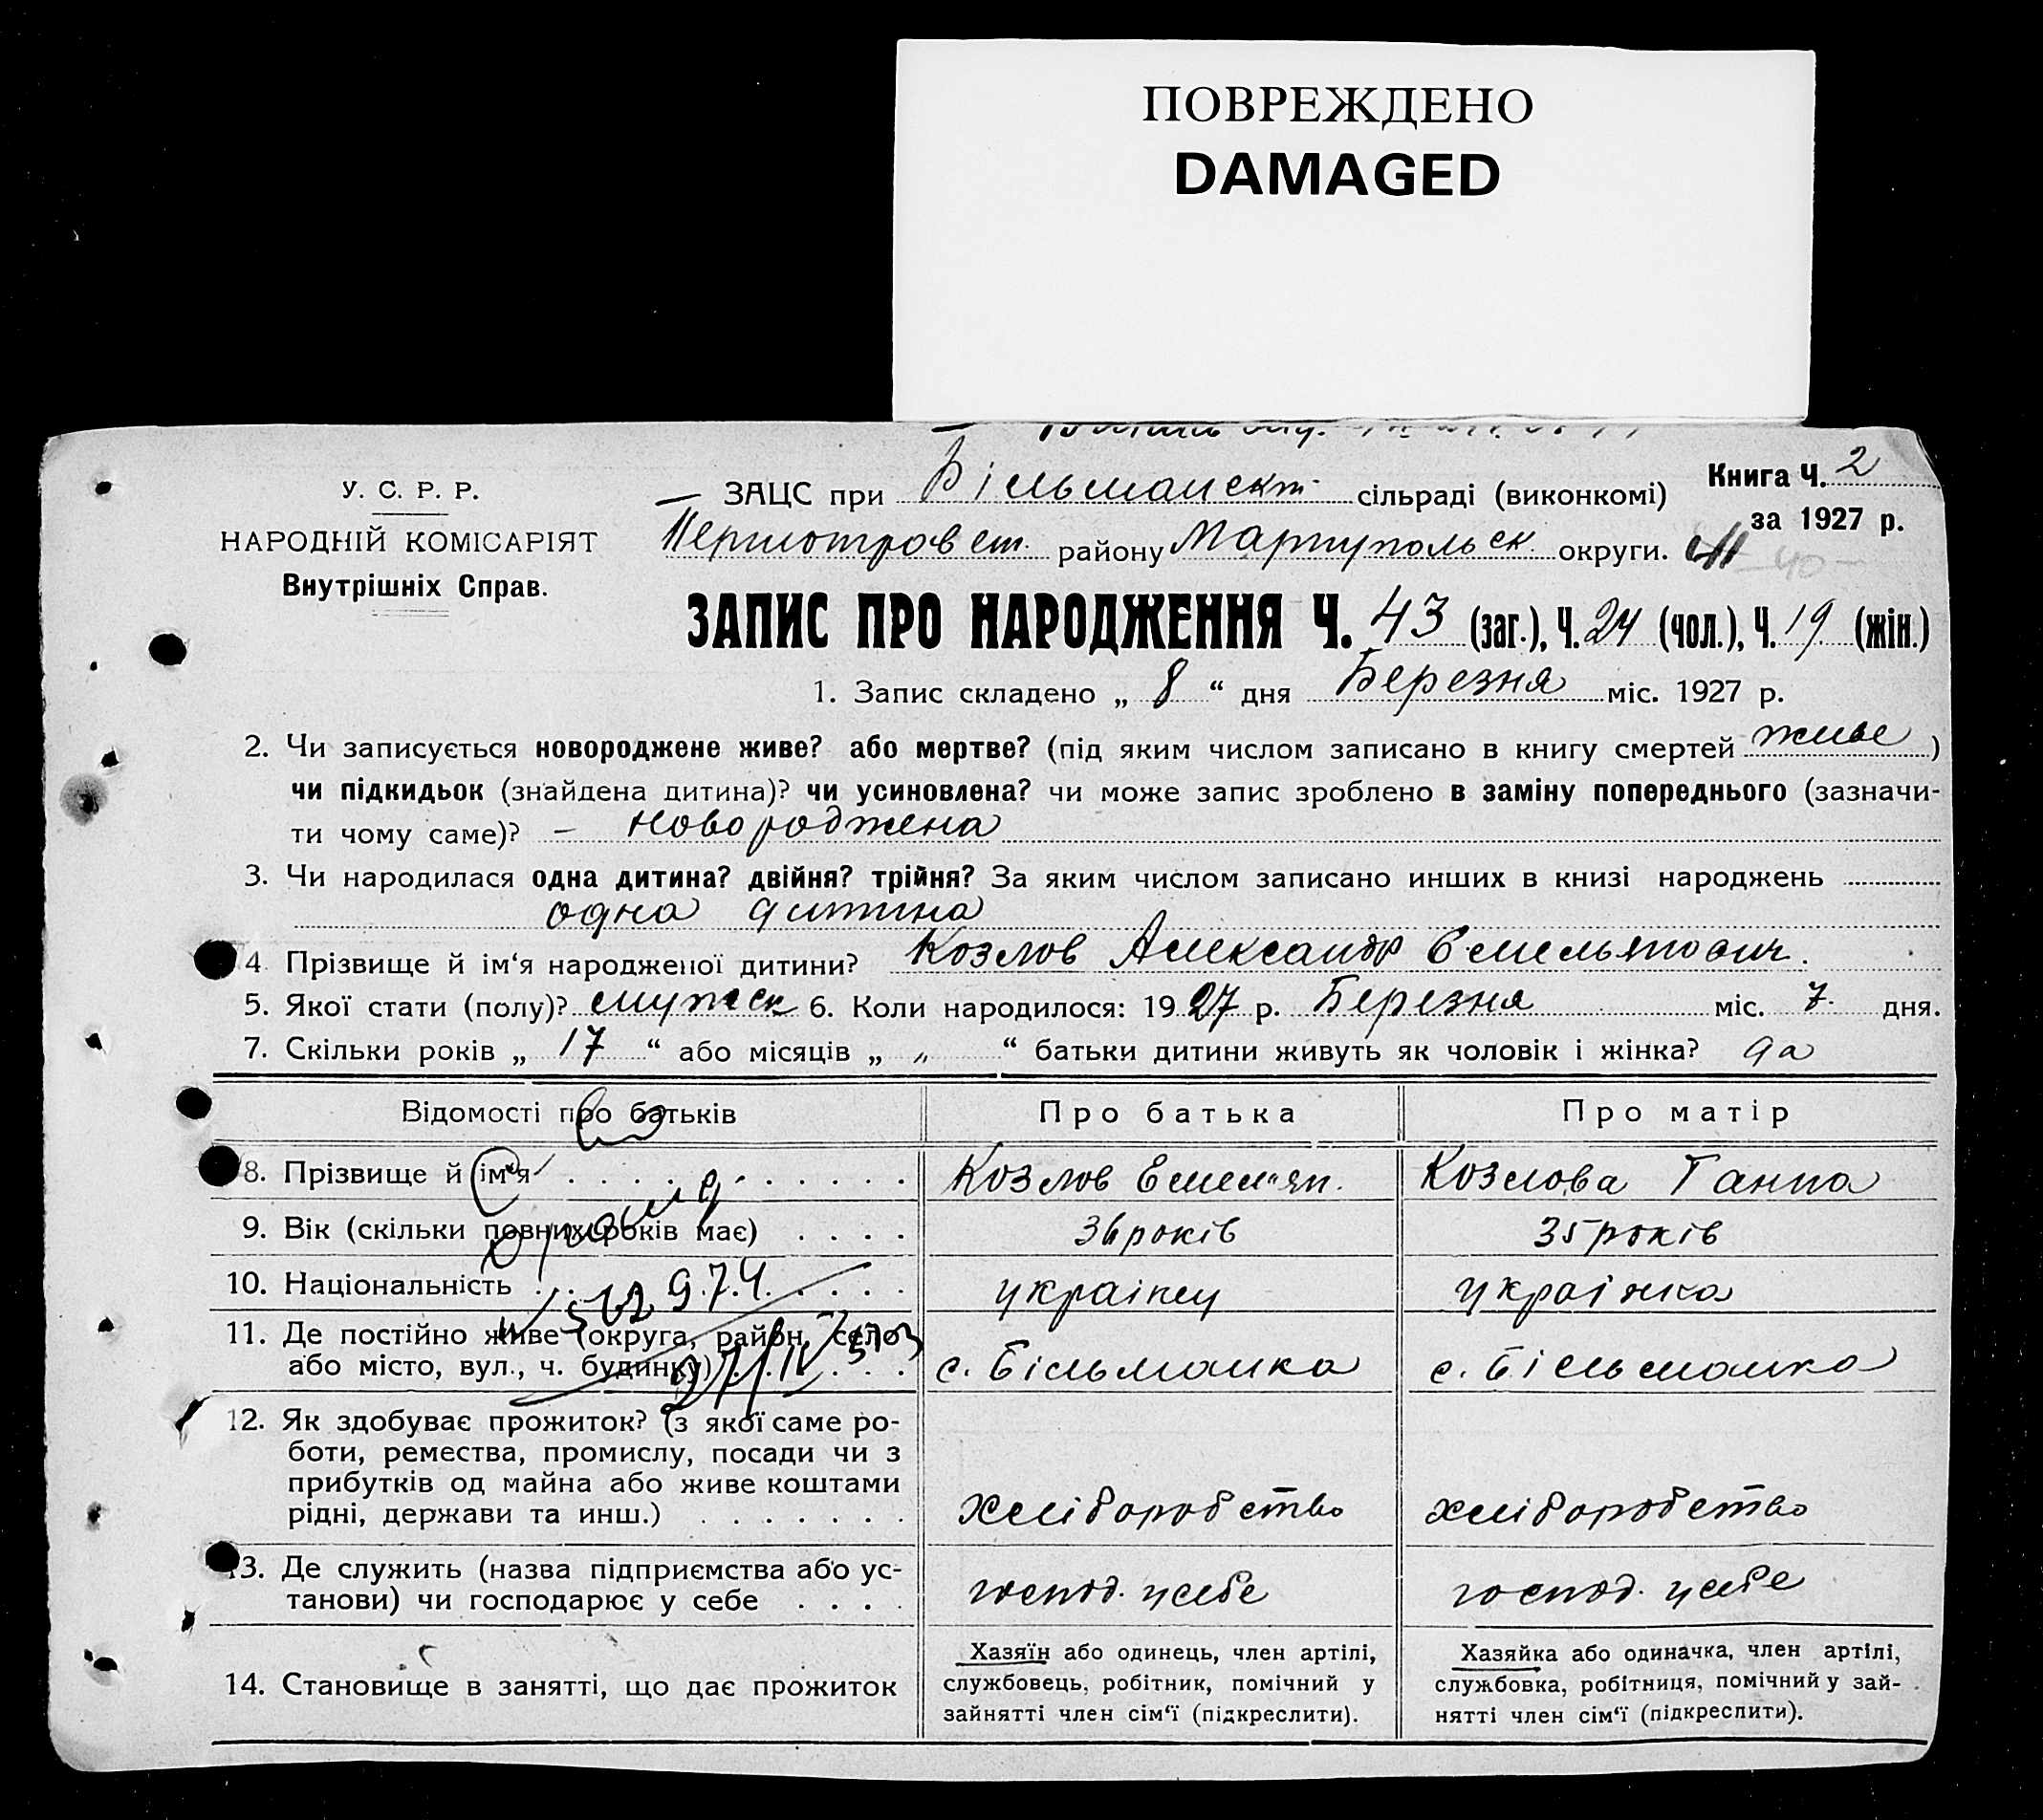 ПОВРЕЖДЕНО
DAMAGED
У. С. Р. Р.
НАРОДНІЙ КОМІСАРІЯТ
Внутрішніх Справ.
Книга Ч. 2
за 1927 р.
ЗАЦС при Більманскт. сільраді (виконкомі)
району Маріупольск. округи.
40
ЗАПИС ПРО НАРОДЖЕННЯ Ч. 43 (заг.), Ч. 24 (чол.), Ч. 19. (жін.)
1. Запис складено „ 8 “ дня Березня міс. 1927 р.
2. Чи записується новороджене живе? або мертве? (під яким числом записано в книгу смертей живе )
чи підкидьок (знайдена дитина)? чи усиновлена? чи може запис зроблено в заміну попереднього (зазначи-
ти чому саме)? – новороджена
3. Чи народилася одна дитина? двійня? трійня? За яким числом записано инших в книзі народжень
одна дитина
4 Прізвище й ім‘я народженої дитини? Козлов Александр Емельянович.
5. Якої стати (полу)? мужск 6. Коли народилося: 1927 р. Березня міс. 7. дня.
7. Скільки років „ 17 “ або місяців „ „ “ батьки дитини живуть як чоловік і жінка? да
Відомості про батьків
Про батька
Про матір
8. Прізвище й ім‘я
Козлов Емел"ян.
Козлова Ганна
9. Вік (скільки повних років має)
36 років
35 років
10. Національність
українец
українка
11. Де постійно живе (округа, район, село
або місто, вул., ч. будинку)
с. Більманка
с. Більманка
12. Як здобуває прожиток? (з якої саме ро-
боти, ремества, промислу, посади чи з
прибутків од майна або живе коштами
рідні, держави та инш.)
хліборобство
хліборобство
13. Де служить (назва підприємства або ус-
танови) чи господарює у себе
господ. у себе
господ. у себе
14. Становище в занятті, що дає прожиток
Хазяїн або одинець, член артілі,
службовець, робітник, помічний у
зайнятті член сім‘ї (підкреслити).
Хазяйка або одиначка, член артілі,
службовка, робітниця, помічний у зай-
нятті член сім‘ї (підкреслити).